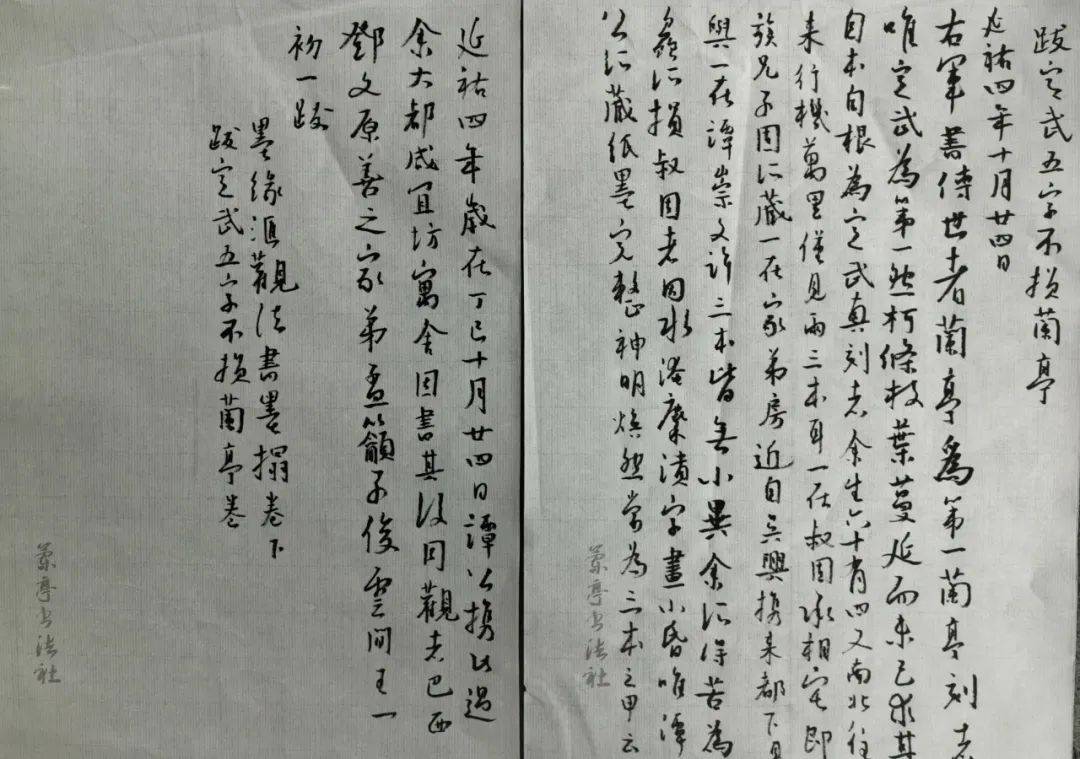 跋定武五字不损蘭亭
延祐四年十月廿四日
右軍書傳世者蘭亭爲第一蘭亭刻者
唯定武為第一然柯條枝葉蔓延而未已求其
自本自根為定武真刻者余生六十有四又南北往
来行機萬里僅見兩三本耳一在叔固承相宅即
族兄子固所藏一在家弟房近自吳興携来都下
興一在譚崇文許三本皆無小異余所得苦為
蟲所損叔固者因水浥麋潰字畫小昏唯譚
公所藏紙墨完整神明焕然當為三本之甲云
延祐四年歲在丁巳十月廿四日譚公携以過
余大都咸宜坊寓舍因書其後同觀者巴西
鄧文原善之家弟孟籲子俊雲间王一
初一跋
墨缘滙觀法書墨搨卷下
跋定武五字不损蘭亭卷
蘭亭书法社
蘭亭书法社